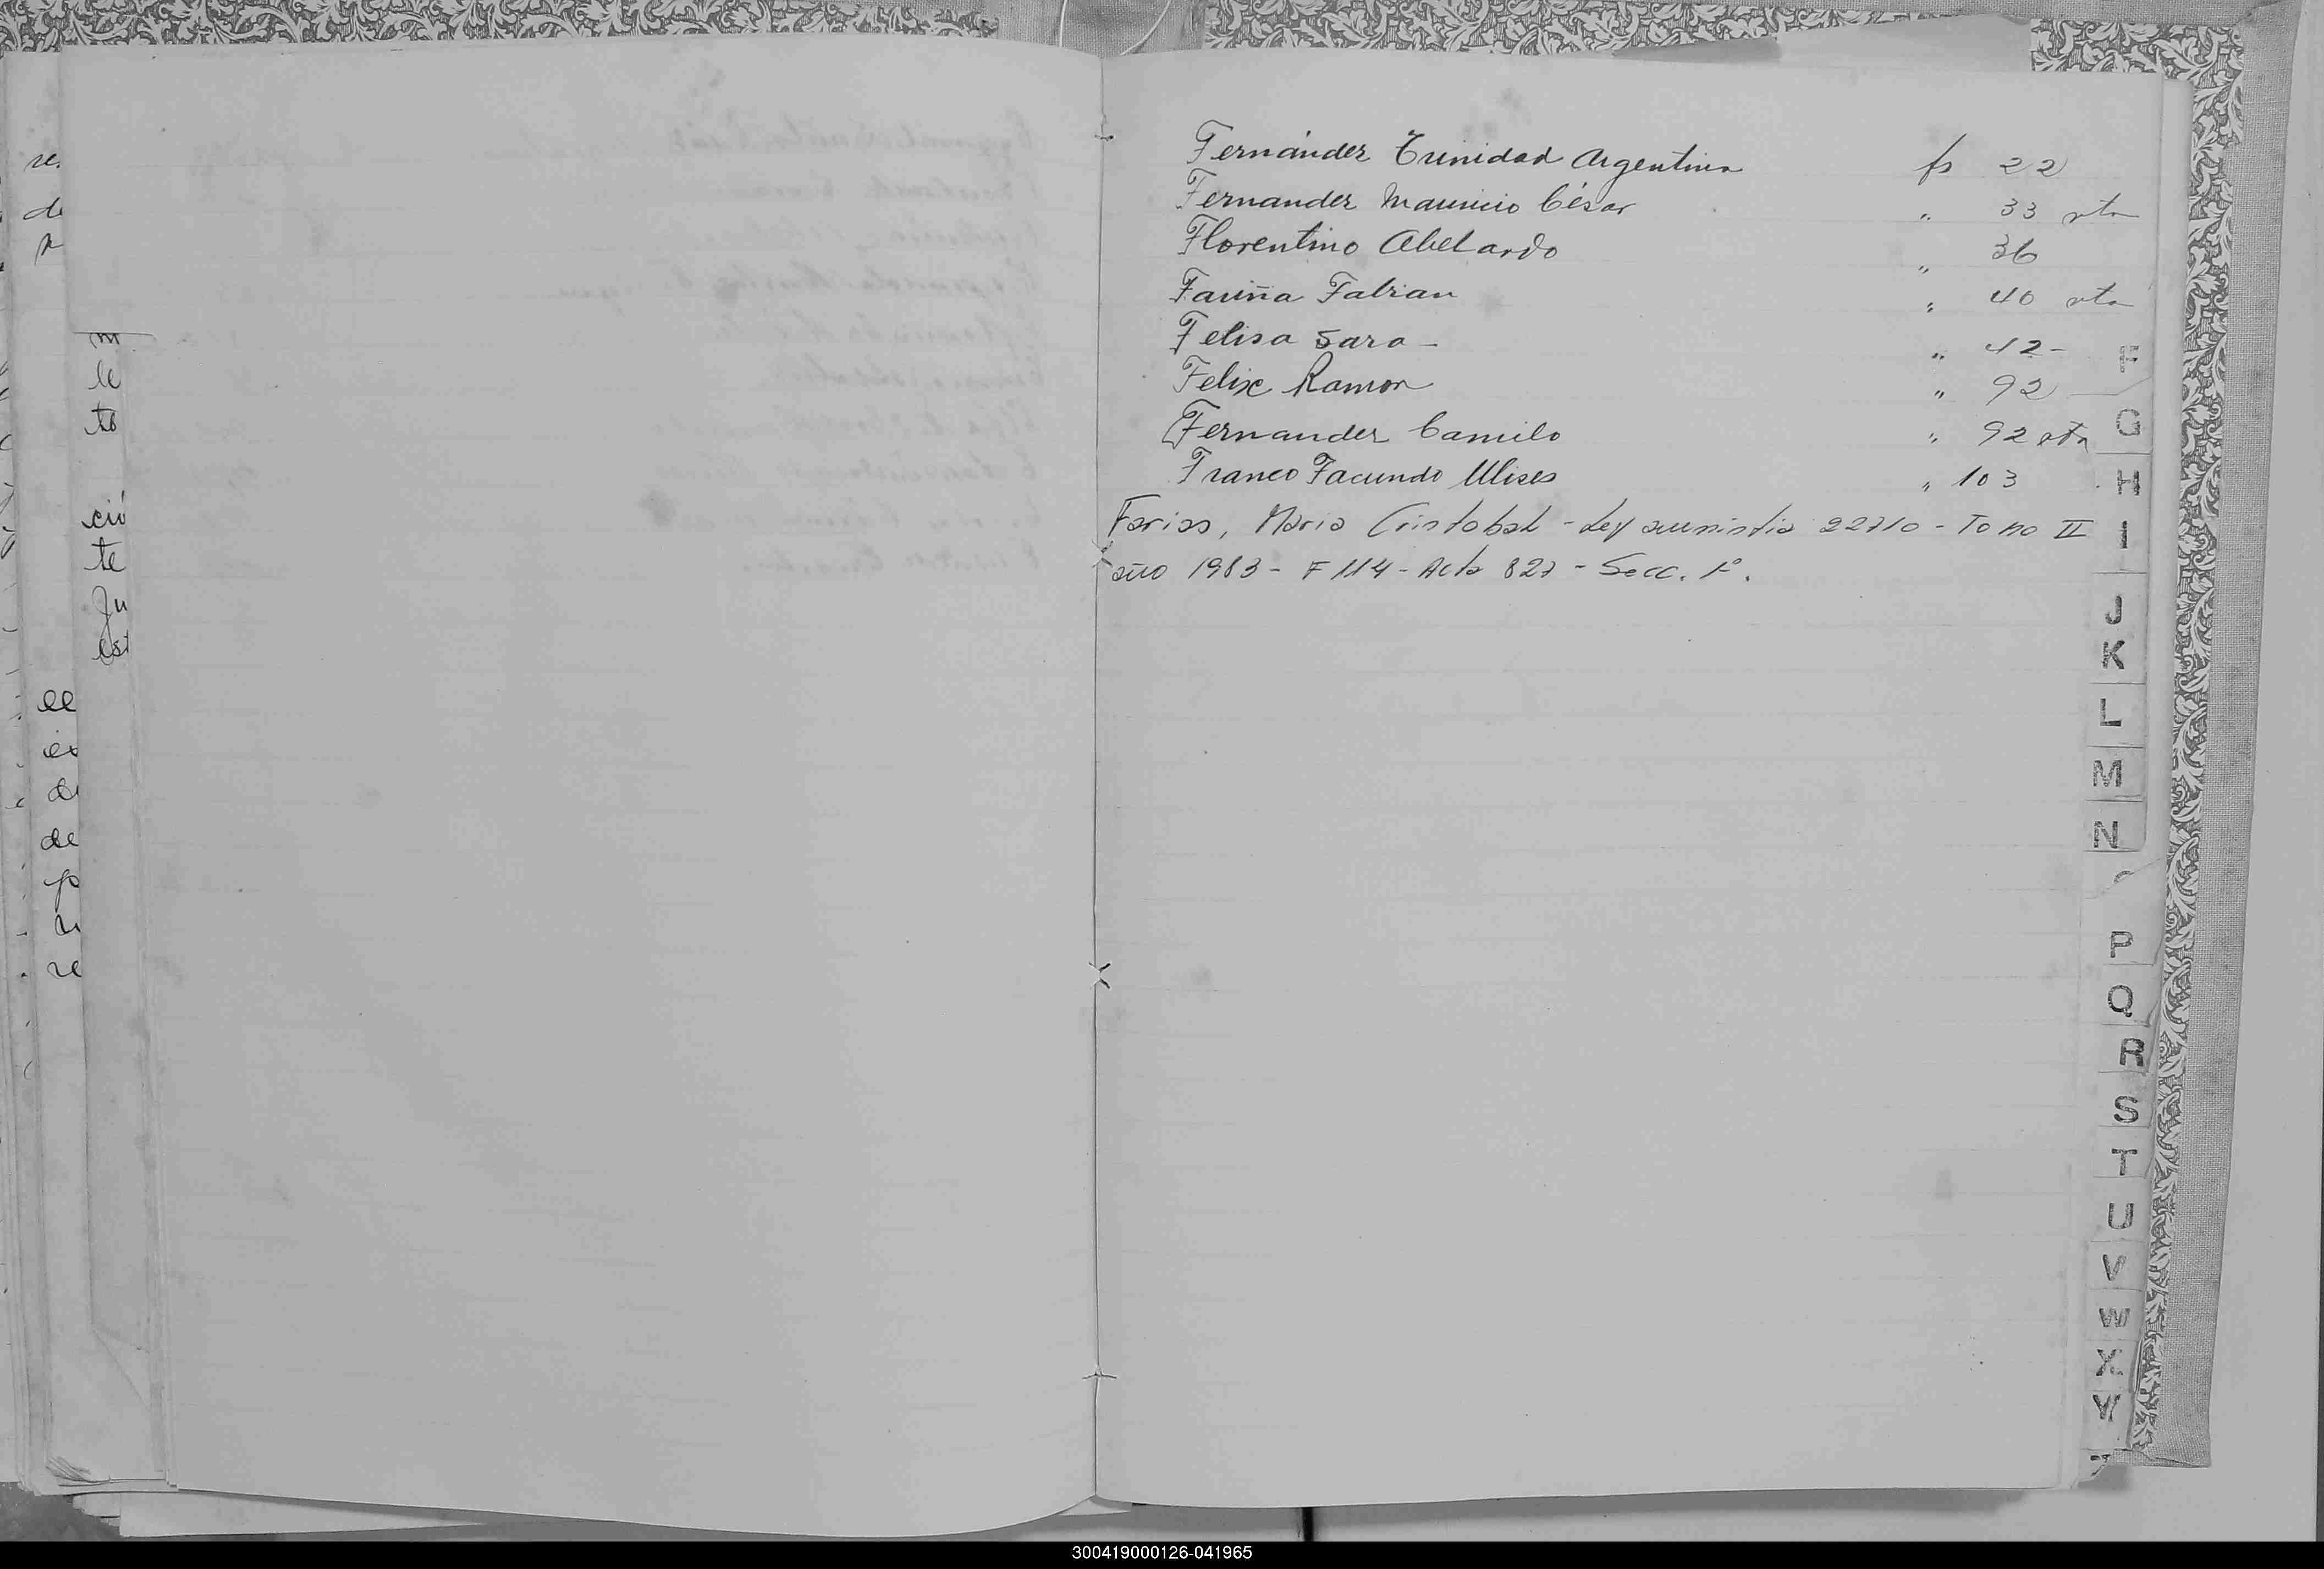 Fernández Trinidad Argentina fs 22
Fernandez Mauricio César " 33 vta
Florentino Abelardo " 36
Fariña Fabian " 40 vta
Felisa Sara - " 42 -
Felix Ramon " 92
Fernandez Camilo " 92 vta
Franco Facundo Ulises " 103
Farias, Maria Cristobal - Ley amnistia 22710 - Tomo II
año 1983 - F 114 - Acta 827 - Secc. 1º.
re.
de
m
le
to
te
Ju
est
F
G
H
I
J
K
L
M
N
P
Q
R
S
T
U
V
W
X
Y
300419000126-041965